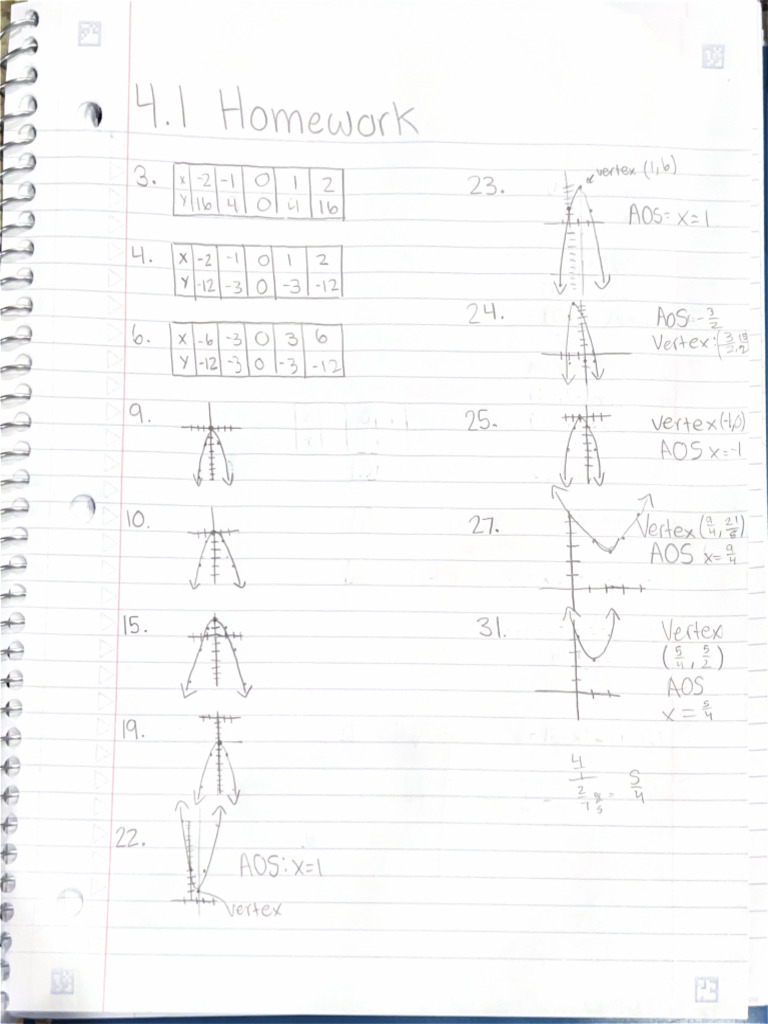 4.1 Homework
3.
X -2 -1 0 1 2
Y 16 4 0 4 16
4.
X -2 -1 0 1 2
Y -12 -3 0 -3 -12
6.
X -6 -3 0 3 6
Y -12 -3 0 -3 -12
9.
10.
15.
19.
22.
AOS: x=1
vertex
23.
vertex (1,6)
AOS= x=1
24.
AOS: -3/2
Vertex:
25.
vertex (-1,0)
AOS x=-1
27.
Vertex (9/4, 21/8)
AOS x=9/4
31.
Vertex
(5/4, 5/2)
AOS
x = 5/4